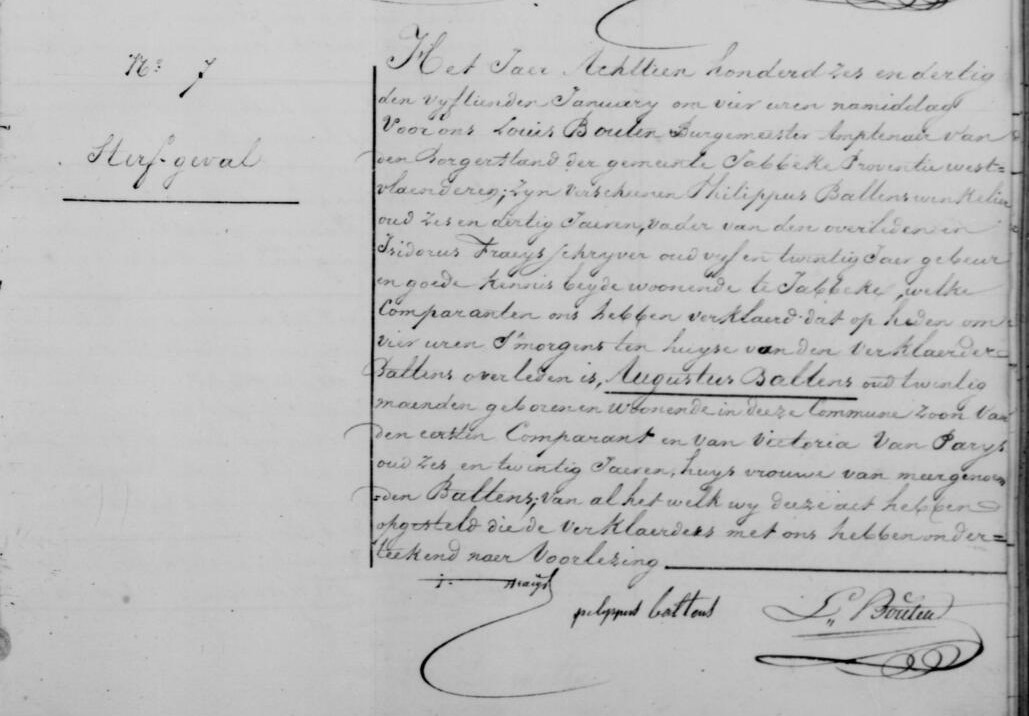 No 7
Sterf-geval
Het Jaer Achttien honderd zes en dertig
den vyftienden January om vier uren namiddag
Voor ons Louis Bouten Burgemeester Amptenaer van
den Borgerstand der gemeente Jabbeke Proventie west=
vlaenderen; zyn verschenen Philippus Baltens winkelier
oud zes en dertig Jaeren, vader van den overleden en
Isidorus Fraeys schryver oud vyf en twintig Jaer gebeur
en goede kennis beyde woonende te Jabbeke, welke
Comparanten ons hebben verklaerd dat op heden om
vier uren s'morgens ten huyse van den verklaerder
Baltens overleden is, Augustus Baltens oud twintig
maenden geboren en woonende in deeze Commune zoon van
den eersten Comparant en van Victoria Van Parys
oud zes en twintig Jaeren, huys vrouwe van meergenoem
=den Baltens; van al het welk wy deeze act hebben
opgesteld die de verklaerders met ons hebben onder=
teekend naer Voorlezing
J. Fraeys
pelyppus baltens
L. Bouten